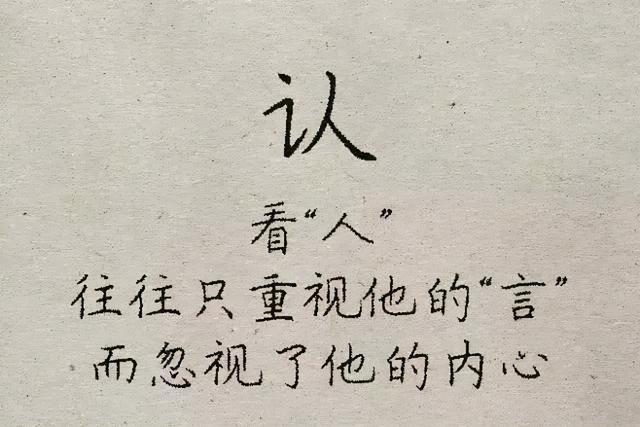 认
看“人”
往往只重视他的“言”
而忽视了他的内心